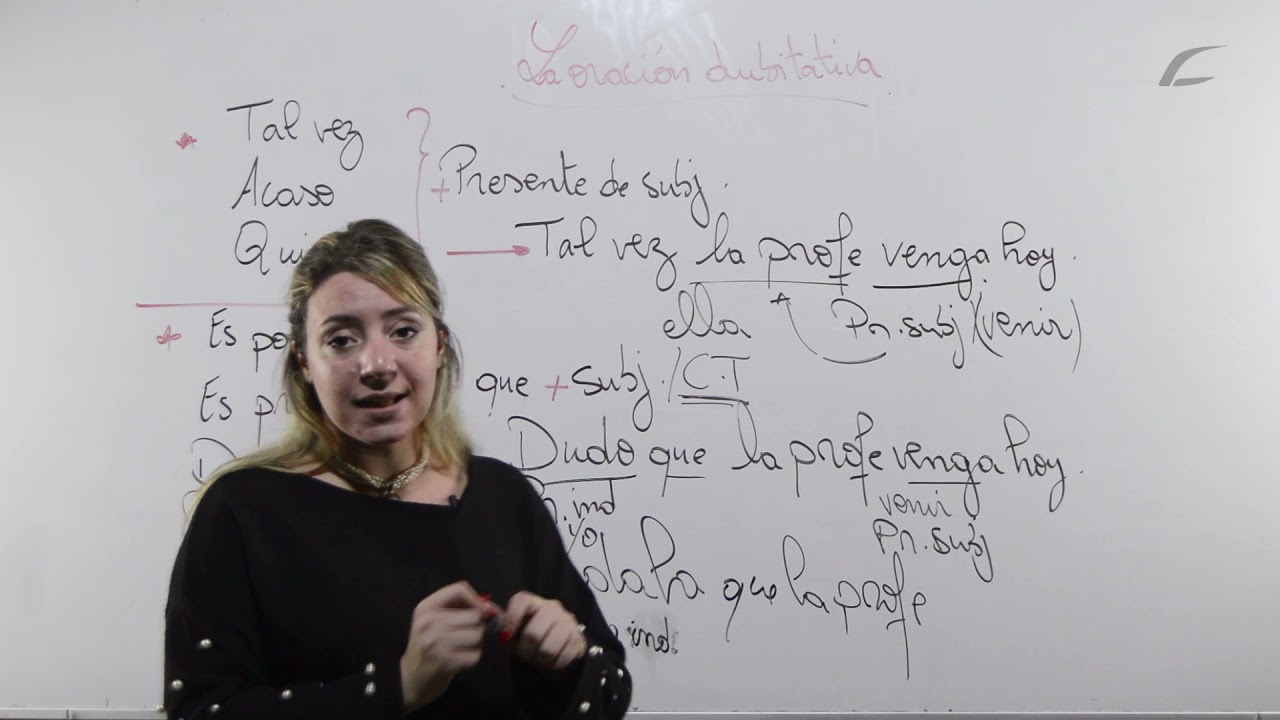 La oración dubitativa
* Tal vez
Acaso
+ Presente de subj.
→ Tal vez la profe venga hoy.
ella
Pr. subj (venir)
* Es
que + subj. / C.T
Es
Dudo que la profe venga hoy.
ind
yo
venir
Pr. subj
que la profe
ind.